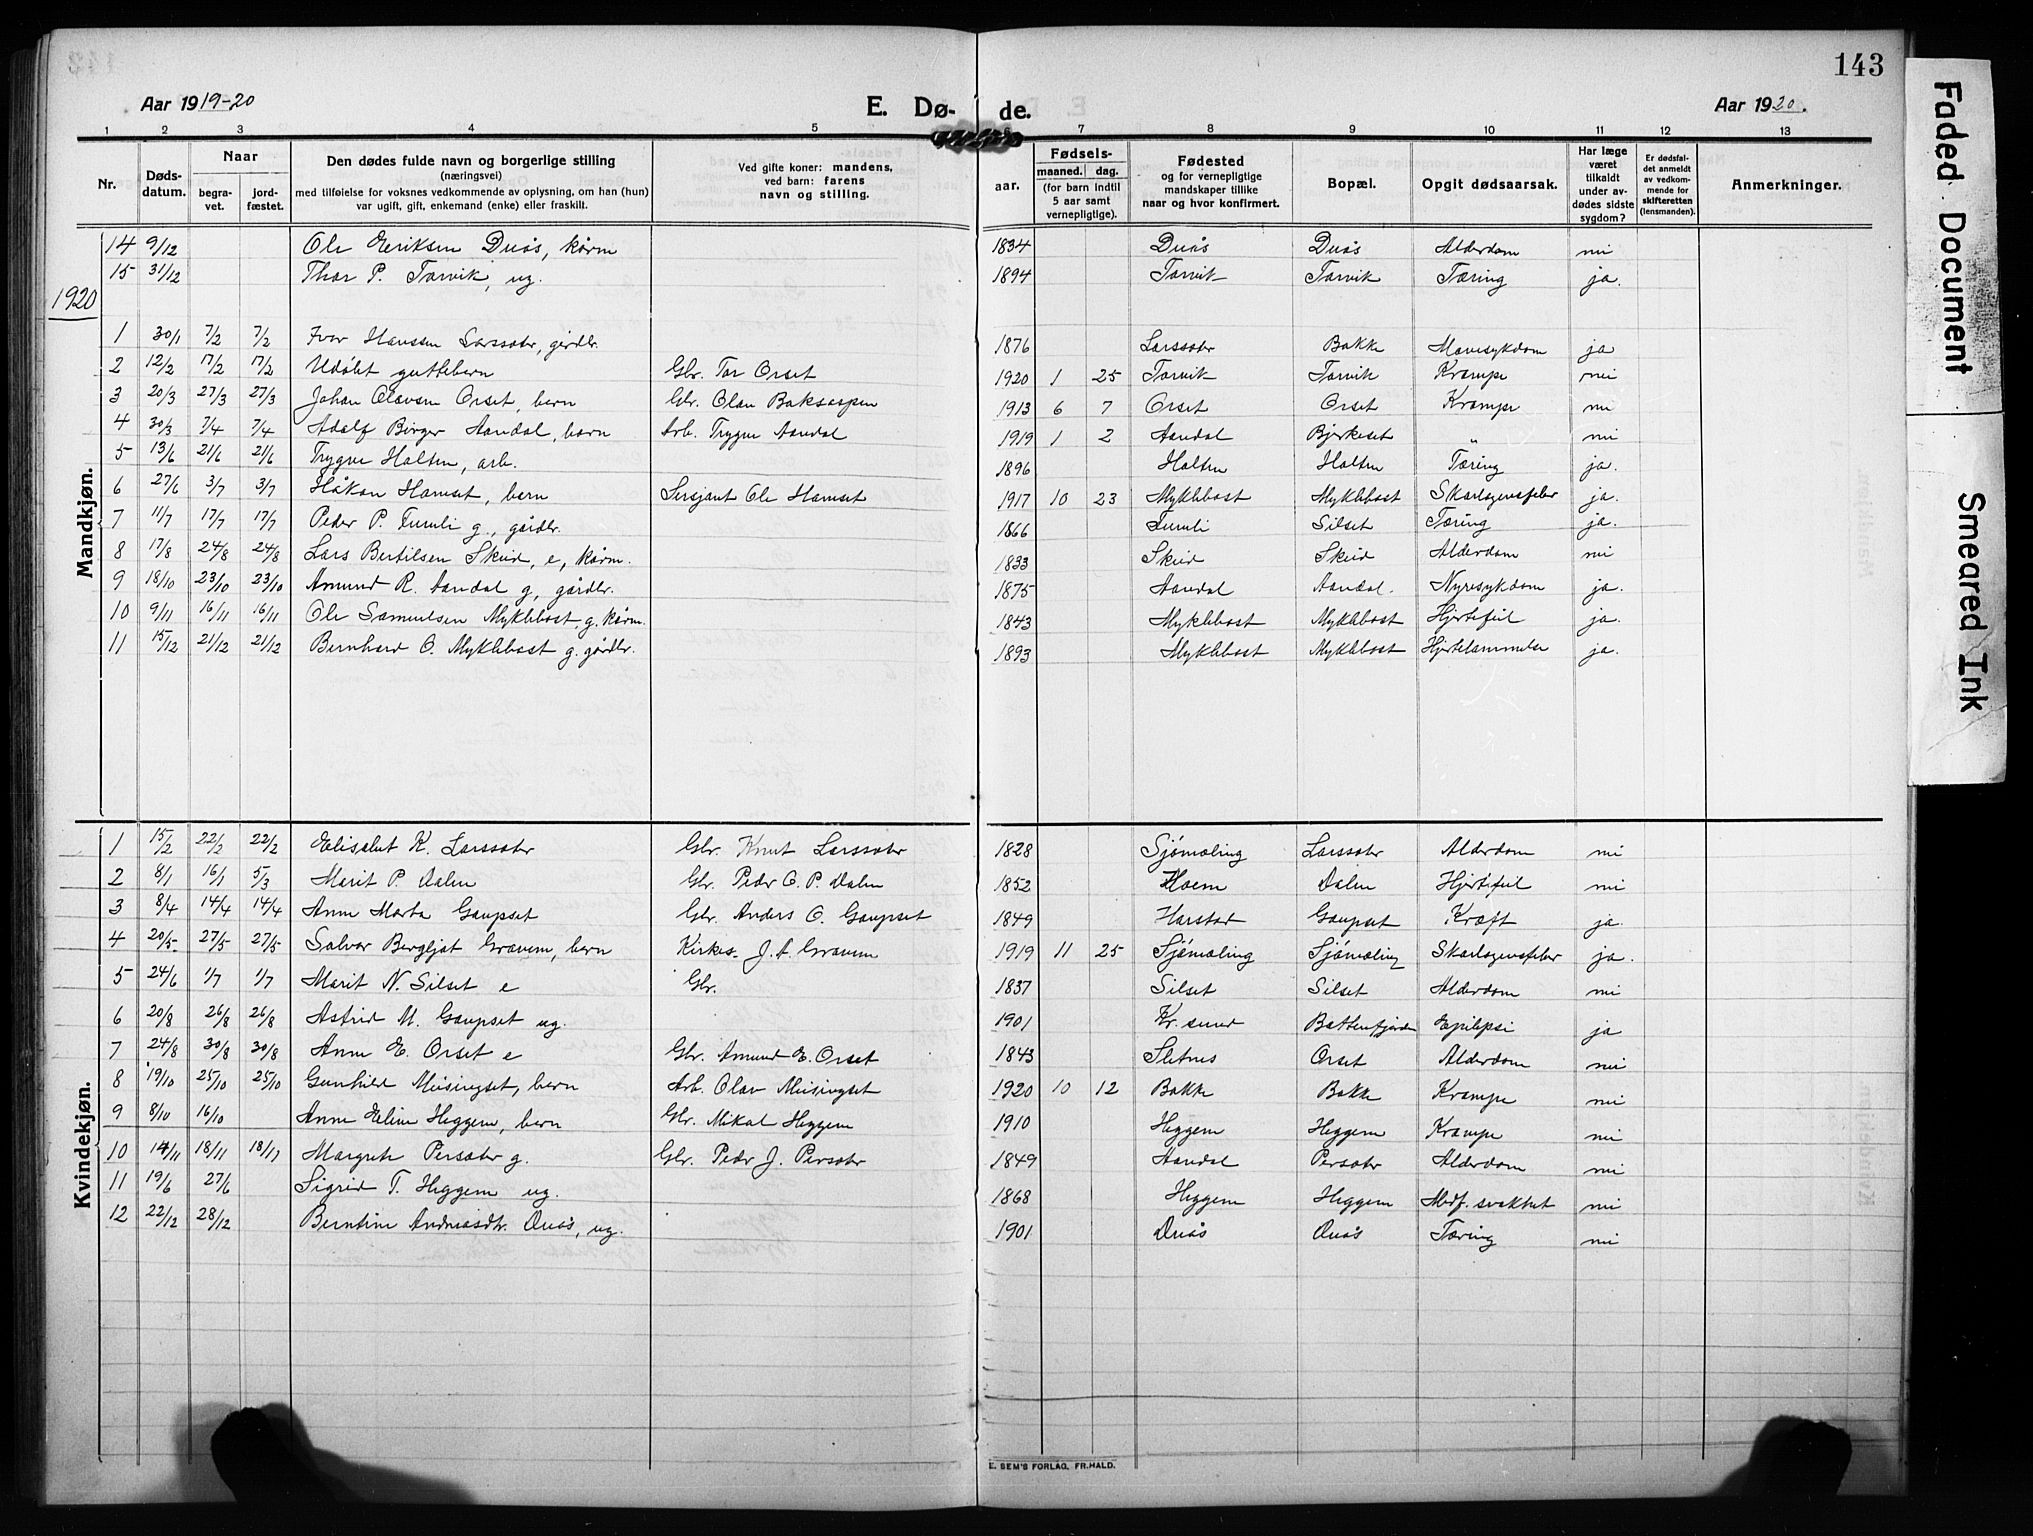 143
Aar 1919-20
E. Dø-
de.
Aar 1920.
1 2 3 4 5 7 8 9 10 11 12 13
Nr.
Døds-
datum.
Naar
begra-
vet.
jord-
fæstet.
Den dødes fulde navn og borgerlige stilling
(næringsvei)
med tilføielse for voksnes vedkommende av oplysning, om han (hun)
var ugift, gift, enkemand (enke) eller fraskilt.
Ved gifte koner: mandens,
ved barn: farens
navn og stilling.
aar.
Fødsels-
maaned. dag.
(for barn indtil
5 aar samt
vernepligtige).
Fødested
og for vernepligtige
mandskaper tillike
naar og hvor konfirmert.
Bopæl.
Opgit dødsaarsak.
Har læge
været
tilkaldt
under av-
dødes sidste
sygdom?
Er dødsfal-
det anmeldt
av vedkom-
mende for
skifteretten
(lensmanden).
Anmerkninger.
Mandkjøn.
14 9/12 Ole Eriksen Duås, kårm 1834 Duås Duås Alderdom nei
15 31/12 Thor P. Torvik, ug. 1894 Torvik Torvik Tæring ja.
1920
1 30/1 7/2 7/2 Ivar Hanssen Larssæter, gårdbr. 1876 Larssæter Bakke Mavesykdom ja
2 12/2 17/2 17/2 Udøbt guttebarn Gbr. Tor Orset 1920 1 25 Torvik Torvik Krampe nei
3 20/3 27/3 27/3 Johan Olavsen Orset, barn Gbr. Olav Baksaspen 1913 6 7 Orset Orset Krampe nei
4 30/3 7/4 7/4 Adolf Birger Aandal, barn Arb. Trygve Aandal 1919 1 2 Aandal Bjerkeset " nei
5 13/6 21/6 21/6 Trygve Holten, arb. 1896 Holten Holten Tæring ja.
6 27/6 3/7 3/7 Håkon Hamset, barn Sersjant Ole Hamset 1917 10 23 Myklebost Myklebost Skarlagensfeber ja.
7 11/7 17/7 17/7 Peder P. Furuli g., gårdbr. 1866 Furuli Silset Tæring ja.
8 17/8 24/8 24/8 Lars Bertilsen Skeid, e, kårm. 1833 Skeid Skeid Alderdom nei
9 18/10 23/10 23/10 Amund R. Aandal g, gårdbr. 1875 Aandal Aandal. Nyresykdom ja.
10 9/11 16/11 16/11 Ole Samuelsen Myklebost, g. kårm. 1843 Myklebost Myklebost Hjertefeil ja.
11 15/12 21/12 21/12 Bernhard O. Myklebost g. gårdbr. 1893 Myklebost Myklebost Hjertelammelse ja.
Kvindekjøn.
1 15/2 22/2 22/2 Elisabet K. Larssæter Gbr. Knut Larssæter 1828 Sjømæling Larssæter Alderdom nei
2 8/1 16/1 5/3 Marit P. Dalen Gbr. Peder O. P. Dalen 1852 Hoem Dalen Hjertefeil nei
3 8/4 14/4 14/4 Anne Marta Gaupset Gbr. Anders O. Gaupset 1849 Harstad Gaupset Kræft ja.
4 20/5 27/5 27/5 Solvor Bergljot Gravem, barn Kirkes. J. A. Gravem 1919 11 25 Sjømæling Sjømæling Skarlagensfeber ja.
5 24/6 1/7 1/7 Marit N. Silset e Gbr. 1837 Silset Silset Alderdom nei
6 20/8 26/8 26/8 Astrid M. Gaupset ug. 1901 Kr.sund Battenfjorden Epilepsi ja
7 24/8 30/8 30/8 Anne E. Orset e Gbr. Amund E. Orset 1843 Sletnes Orset Alderdom nei
8 19/10 25/10 25/10 Gunhild Meisingset, barn Arb. Olav Meisingset 1920 10 12 Bakke Bakke Krampe nei
9 8/10 16/10 Anne Eline Heggem, barn Gbr. Mikal Heggem 1910 Heggem Heggem Krampe nei
10 14/11 18/11 18/11 Margrete Persæter g. Gbr. Peder J. Persæter 1849 Aandal Persæter Alderdom nei
11 19/6 27/6 Sigrid T. Heggem ug. 1868 Heggem Heggem Medf. svakhet nei
12 22/12 28/12 Berntine Andreasdtr. Duås, ug. 1901 Duås Duås Tæring nei
E. SEM'S FORLAG, FR.HALD.
Faded Document
Smeared Ink